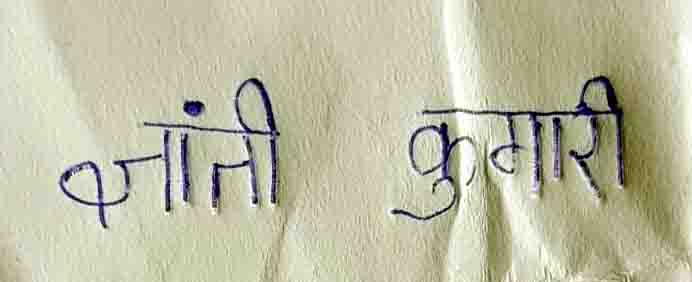 शांती कुमारी